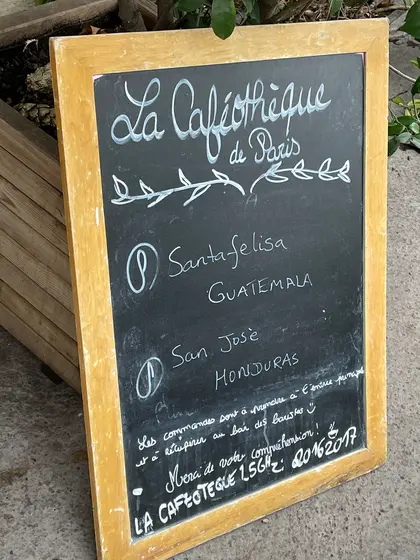 La Caféothèque
de Paris
Santa-felisa
GUATEMALA
San Josè
HONDURAS
Les commandes sont à prendre à l'entrée principale
et à récupérer au bar des baristas
Merci de votre compréhension!
LA CAFEOTEQUE LSGHz: 20162017